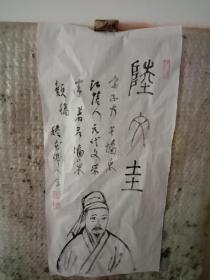 陸文圭
字子方号墻東
江陰人元代文学
家著有墻東
類稿